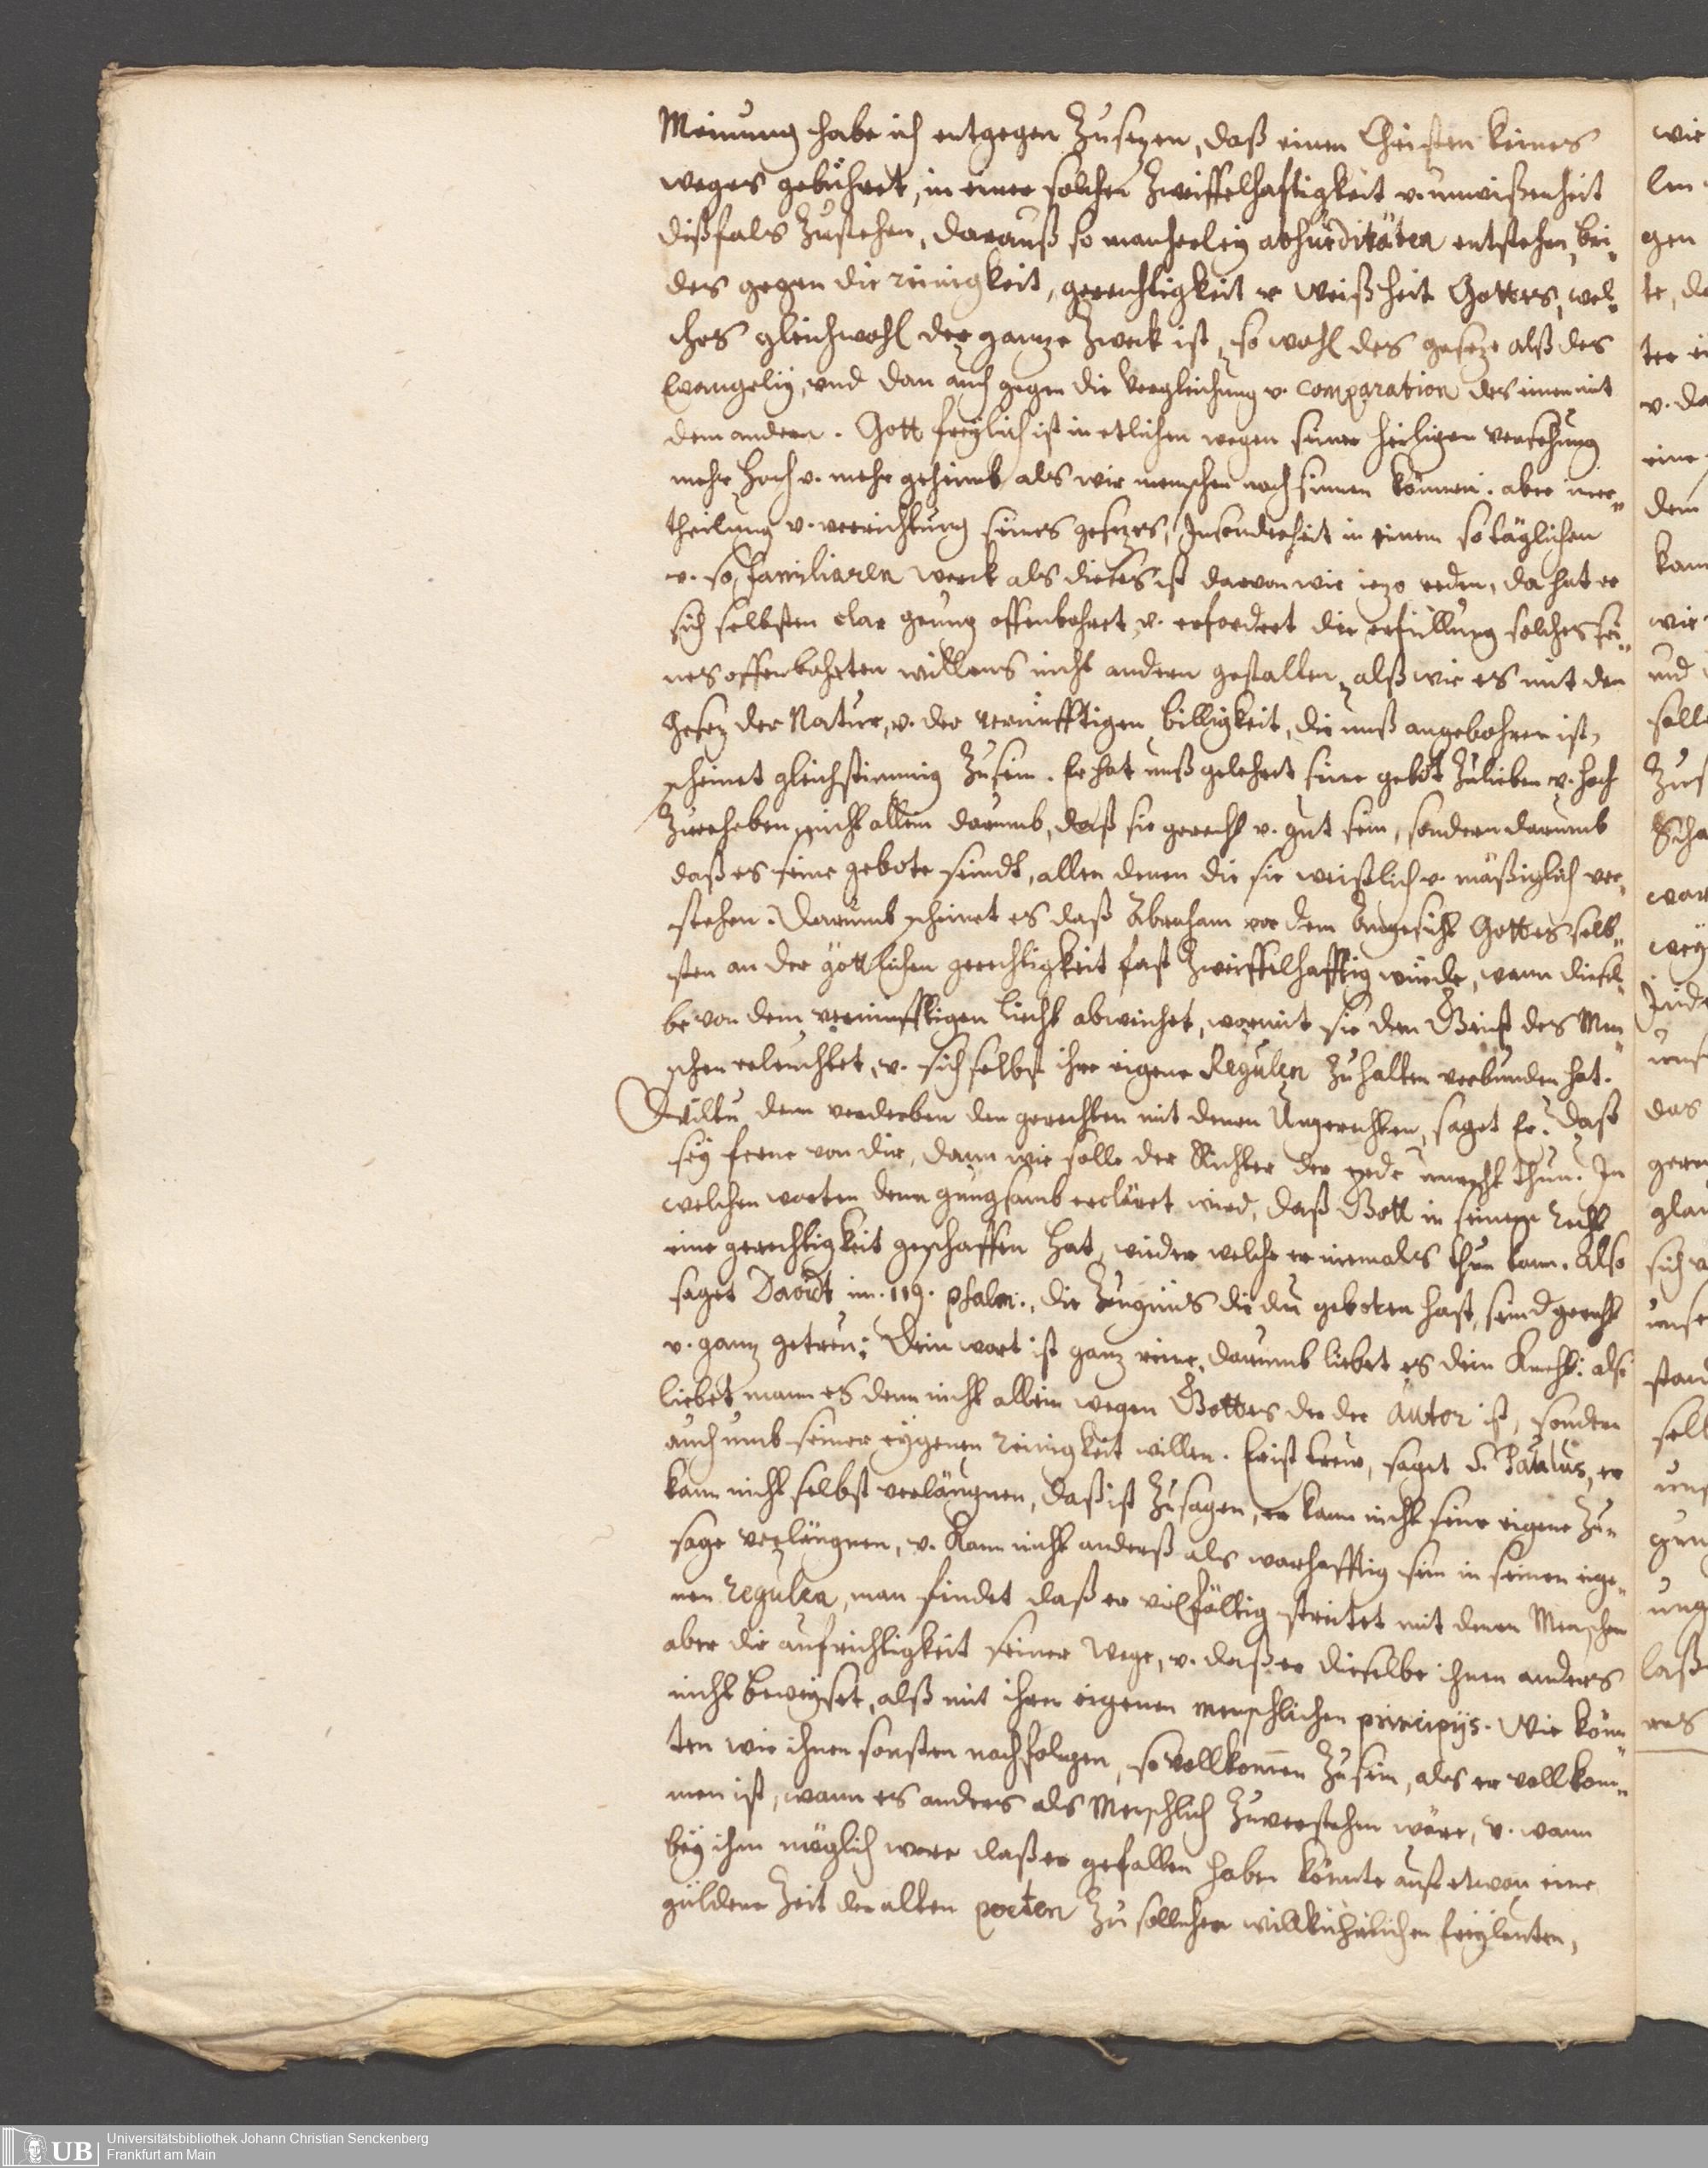 Meinung habe ich entgegen Zusezen, daß einem Christen keines
weges gebühret, in einer solchen Zweiffelhaftigkeit v. unwißenheit
dißfals Zustehen, darauß so mancherley absurditäten entstehen, bei-
des gegen die reinigkeit, gerechtigkeit v. Weißheit Gottes, wel-
ches gleichwohl der ganze Zweck ist, so wohl des gesezes alß des
Evangelij, und dan auch gegen die Vergleichung v. comparation des einen mit
dem andern. Gott freylich ist in etlichen wegen seiner heiligen versehung
mehr hoch v. mehr geheimb als wir menschen nach sinnen können. aber in er-
theilung v. verrichtung seines gesezes, Insonderheit in einem so täglichen
v. so familiaren werck als dieses ist darvon wir iezo reden, da hat er
sich selbsten clar genug offenbahret v. erfordert die erfüllung solches sei-
nes offenbahrten willens nicht andern gestalten, alß wie es mit dem
Gesez der Natur, v. der vernünfftigen billigkeit, die unß angebohren ist,
scheinet gleichstimmig Zusein. Er hat unß gelehret seine gebot Zulieben v. hoch
Zuerheben, nicht allein darumb, daß sie gerecht v. gut sein, sondern darumb
daß es seine gebote seindt, allen denen die sie weißlich v. mäßiglich ver-
stehen. Darumb scheinet es daß Abraham vor dem Angesicht Gottes selb-
sten an der göttlichen gerechtigkeit fast Zweiffelhafftig würde, wann diesel-
be von dem vernünfftigen liecht abweichet, wormit sie den Geist des Men-
schen erleuchtet, v. sich selbst ihre eigene Regulen Zuhalten verbunden hat.
Wiltu denn verderben den gerechten mit denen Ungerechten, saget Er. Daß
sey ferne von dir, dann wie solle der Richter der erde unrecht thun. In
welchen worten denn gnugsamb erclärt wird, daß Gott in seinem recht
eine gerechtigkeit geschaffen hat, wieder welche er niemals thun kann. Also
saget Davidt im. 119. psalm., die Zeugnus die du geboten hast, seind gerecht
v. ganz getreu; Dein wort ist ganz reine, darumb liebet es dein Knecht: also
liebet mann es denn nicht allein wegen Gottes der der autor ist, sondern
auch umb seiner eygenen reinigkeit willen. Er ist trew, saget S. Paulus, er
kann nicht selbst verläugnen, daß ist Zusagen, er kann nicht seine eigene Zu-
sage verläugnen, v. Kann nicht anderß als warhafftig sein in seinen eige-
nen regulen, man findet daß er vielfältig streitet mit denen Menschen
aber die aufrichtigkeit seiner Wege, v. daß er dieselbe ihnen anders
nicht beweyset, alß mit ihren eigenen menschlichen principijs. Wie könn-
ten wir ihnen sonsten nachfolgen, so vollkommen Zusein, als er vollkom-
men ist, wann es anders als Menschlich Zuverstehen wäre, v. wann
bey ihm möglich were daß er gefallen haben könnte auf etwan eine
güldene Zeit der alten poeten Zu sollicher willkührlichen
wie
gen
te, da
v. da
eine
dem
kan
wie
und
soll
Zu
wey
das
unse
selb
uns
ung
laß
res
Universitätsbibliothek Johann Christian Senckenberg
Frankfurt am Main
UB